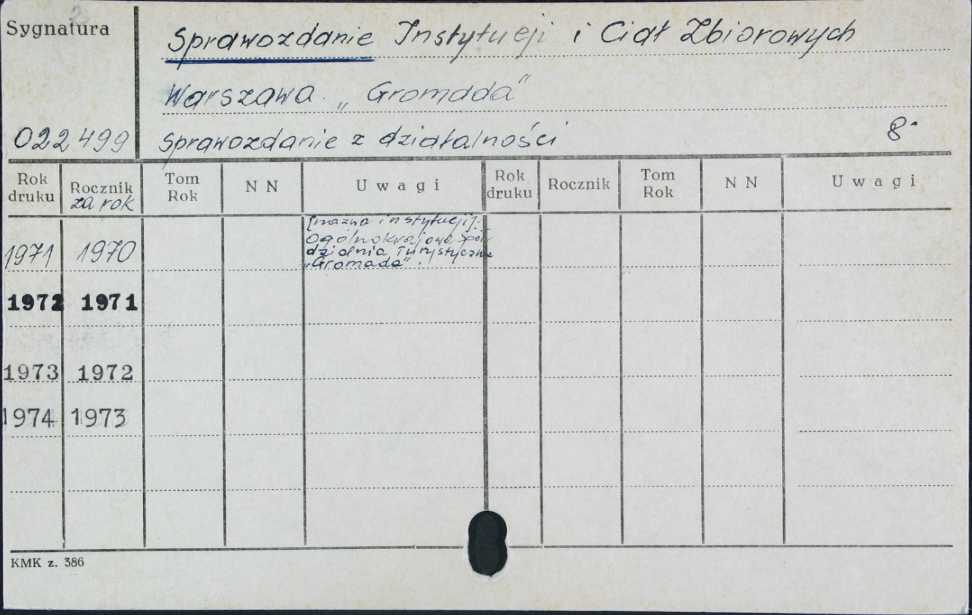 Sygnatura
Sprawozdanie Instytucji i Ciał Zbiorowych
Warszawa. „Gromada"
022499 Sprawozdanie z działalności 8°
Rok druku Rocznik za rok Tom Rok N N Uwagi Rok druku Rocznik Tom Rok N N Uwagi
1971 1970
nazwa instytucji:
Ogólnokrajowa Spół
dzielnia Turystyczna
„Gromada".
1972 1971
1973 1972
1974 1973
KMK z. 386